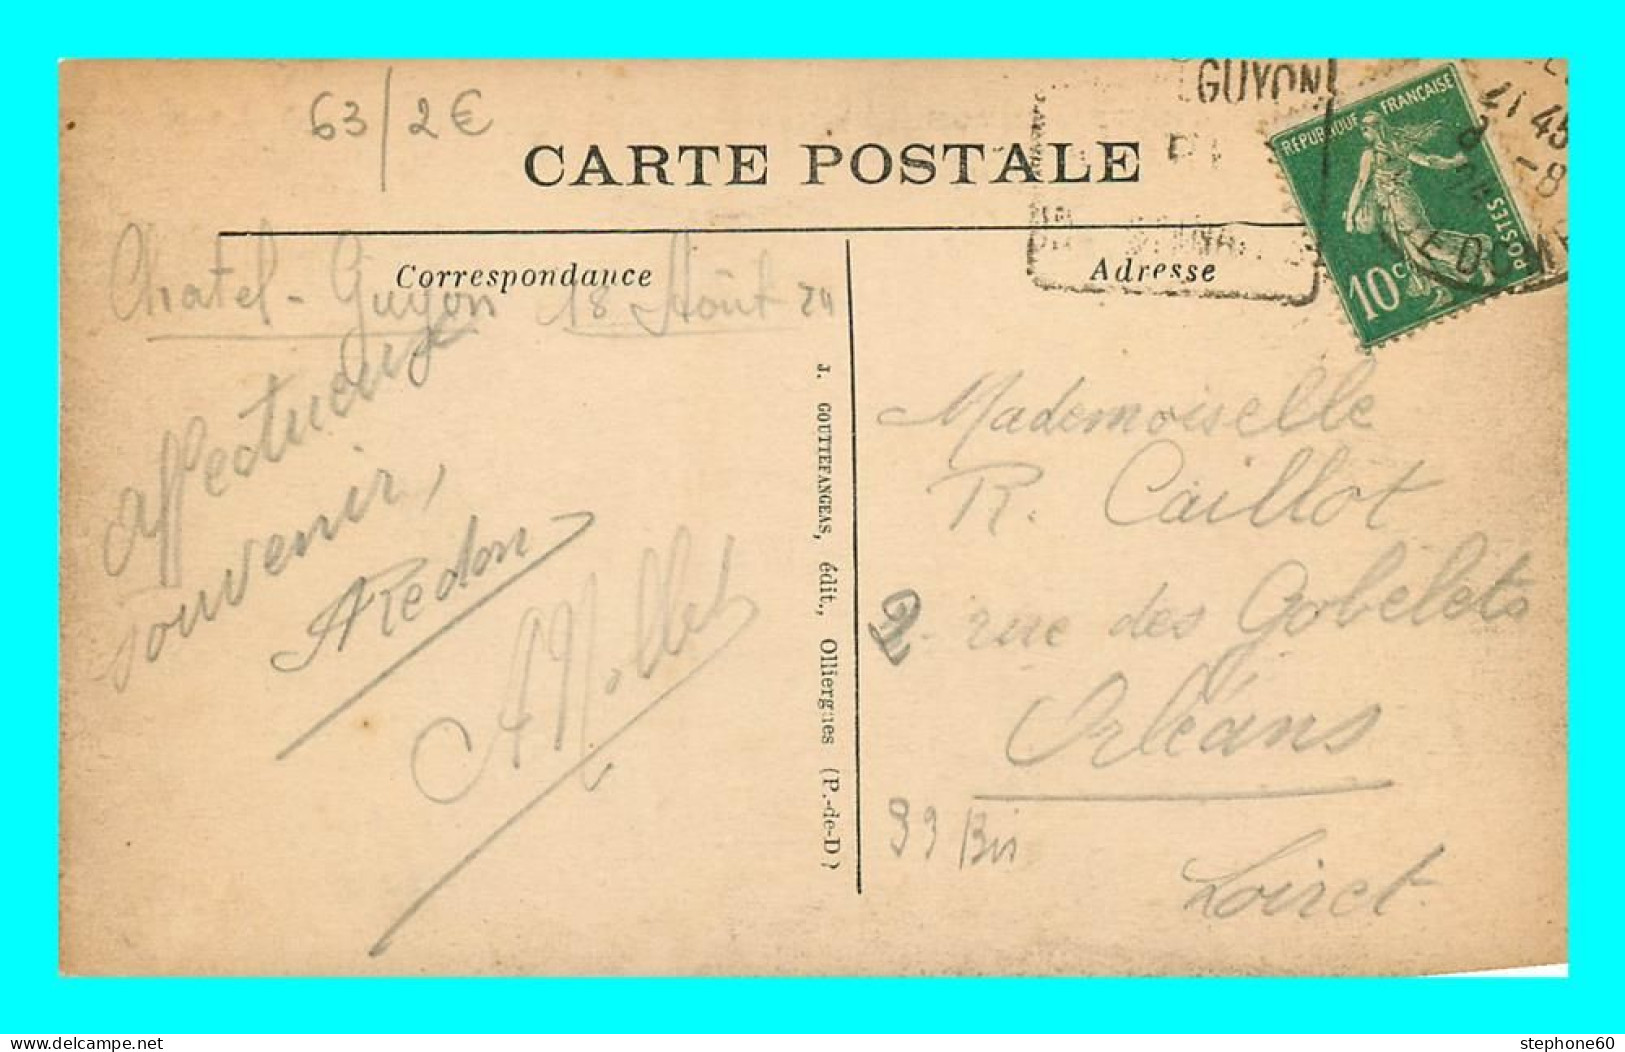 63/2€
CARTE POSTALE
GUYON
RÉPUBLIQUE FRANÇAISE
POSTES
10c
21 45
-8
Correspondance
Adresse
Chatel-Guyon 18 Août 24
affectueux
souvenir,
ARedon
AMillet
J. GOUTTEFANGEAS, édit., Ollierges (P.-de-D)
Mademoiselle
R. Caillot
2. rue des Gobelets
Orléans
99 Bis
Loiret
delcampe.net
stephone60